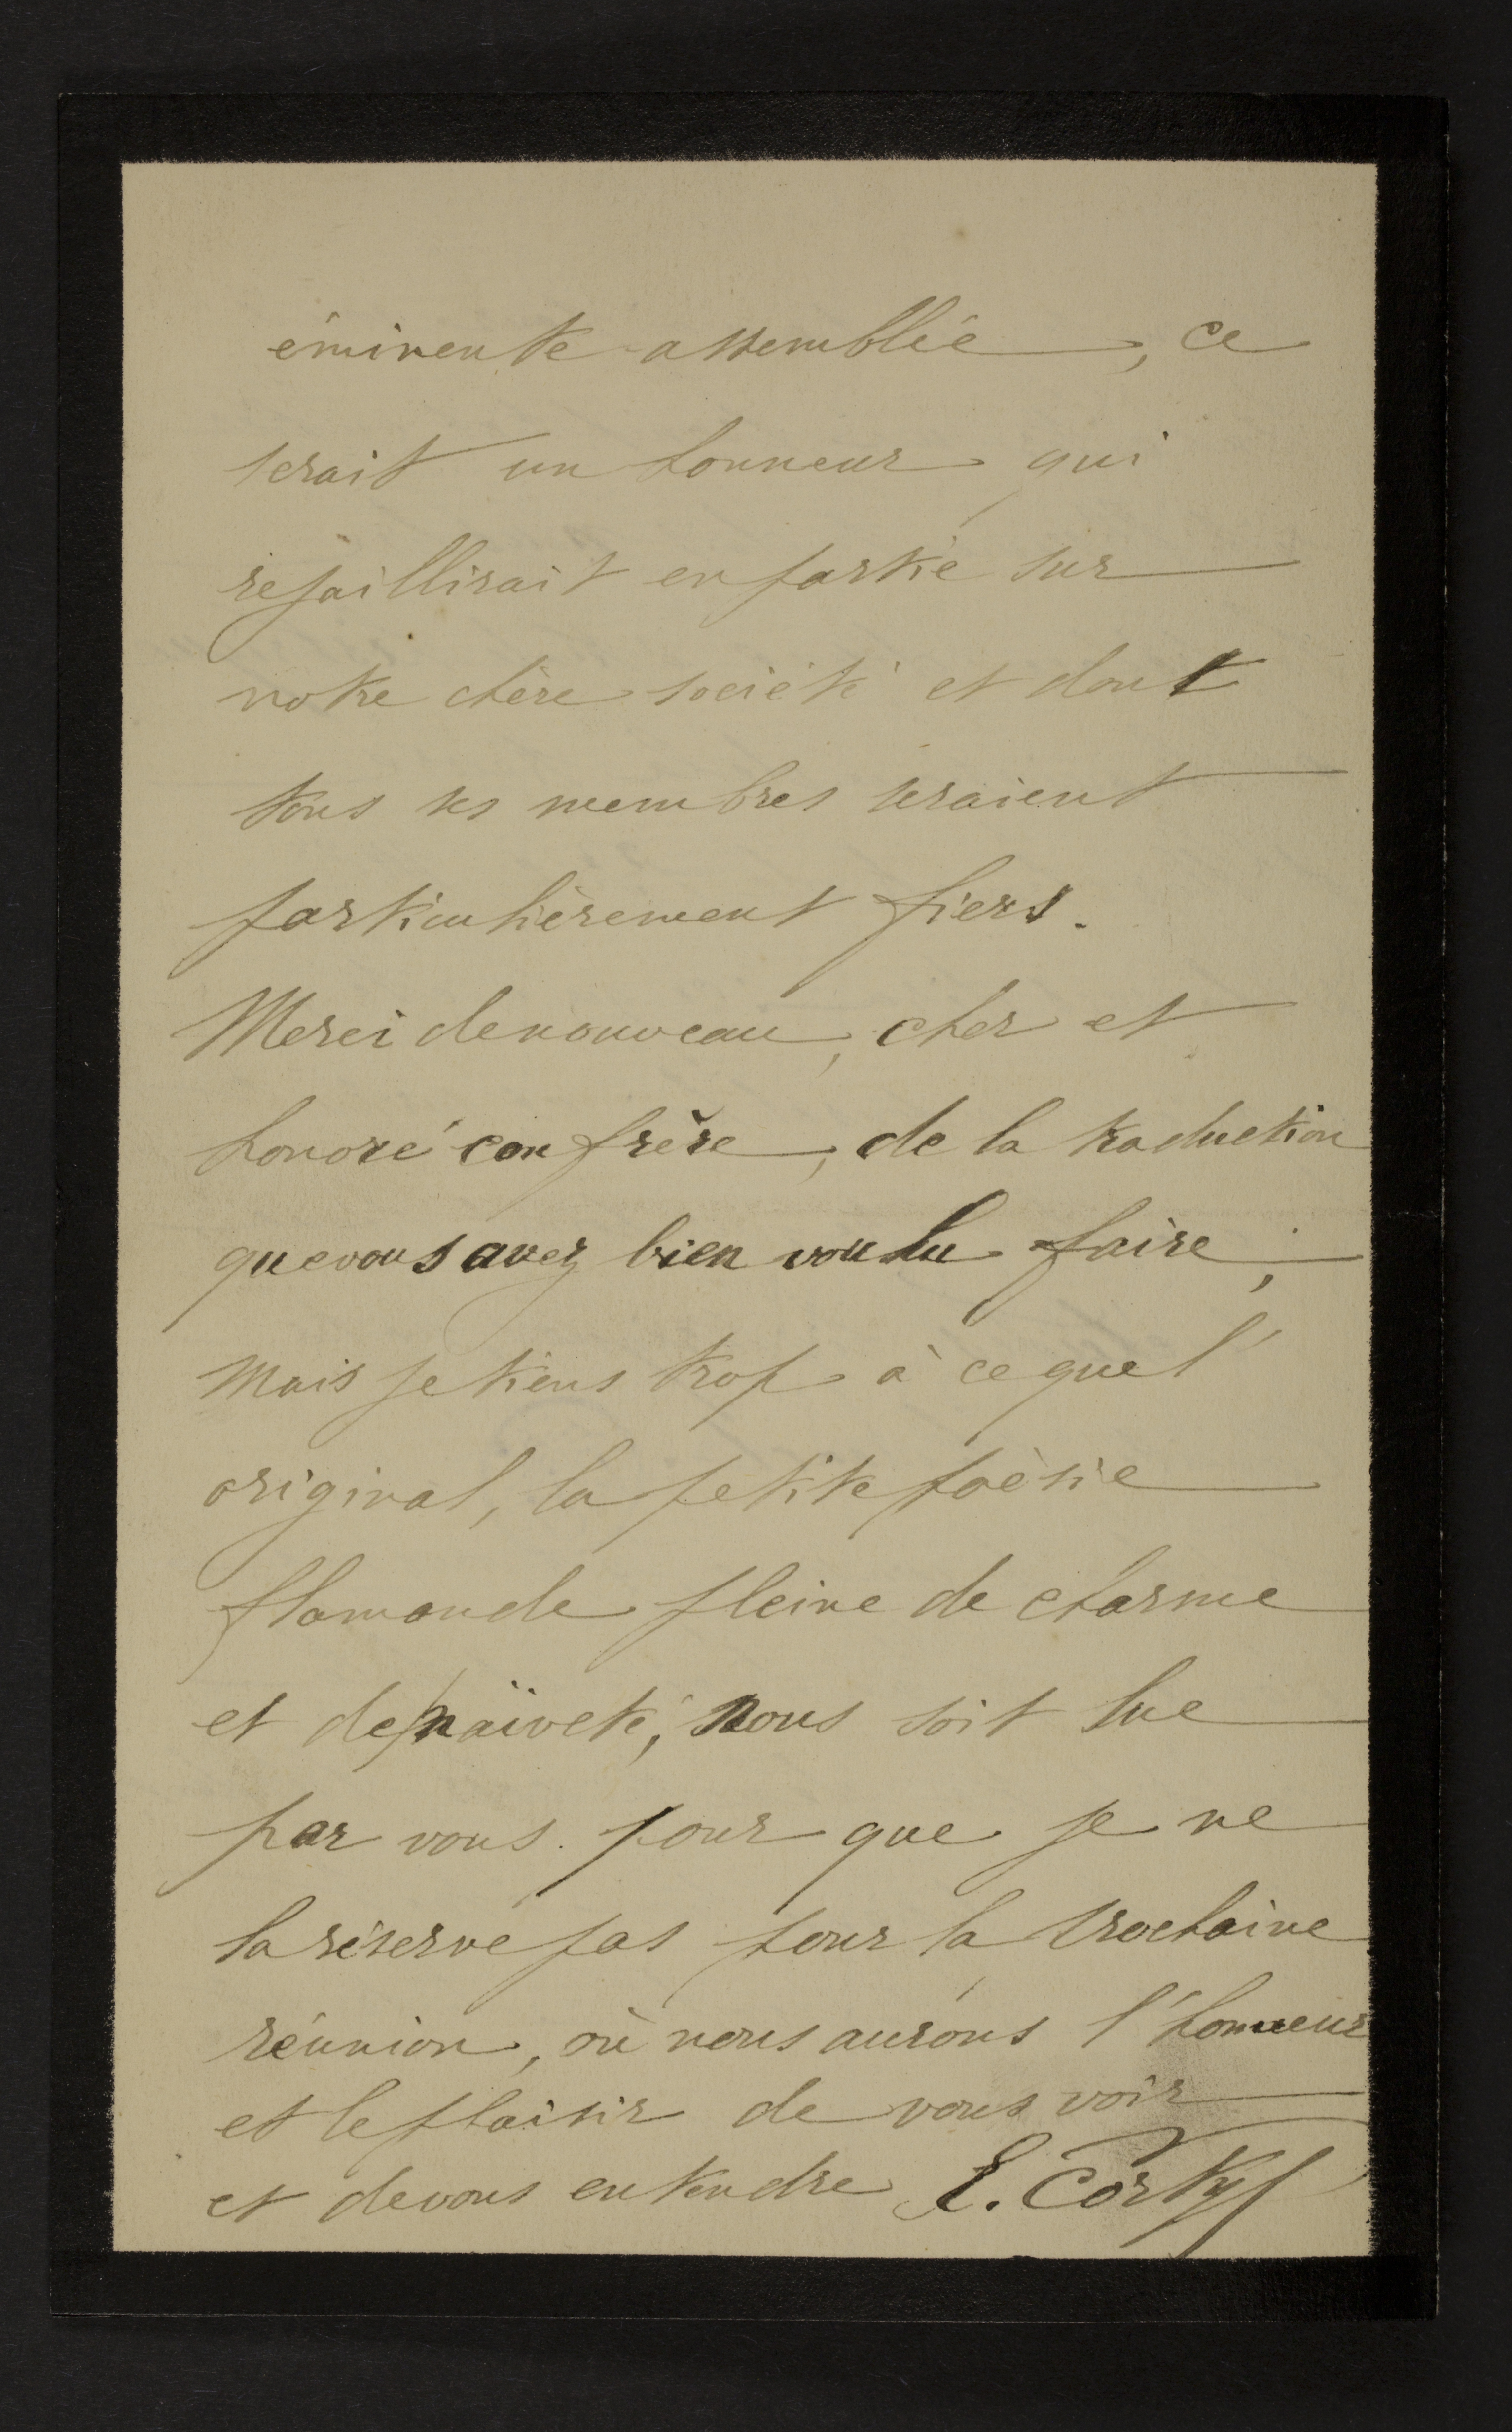 éminente assemblée, ce
serait un honneur qui
rejaillirait en partie sur
notre chère société et dont
tous ses membres seraient
particulièrement fiers.
Merci de nouveau, cher et
honoré confrère, de la traduction
que vous avez bien voulu faire;
mais je tiens trop à ce que l'
original, la petite poèsie
flamande pleine de charme
et de naïveté, nous soit lue
par vous pour que je ne
la réserve pas pour la prochaine
réunion, où nous aurons l'honneur
et le plaisir de vous voir
et de vous entendre E. Cortyl